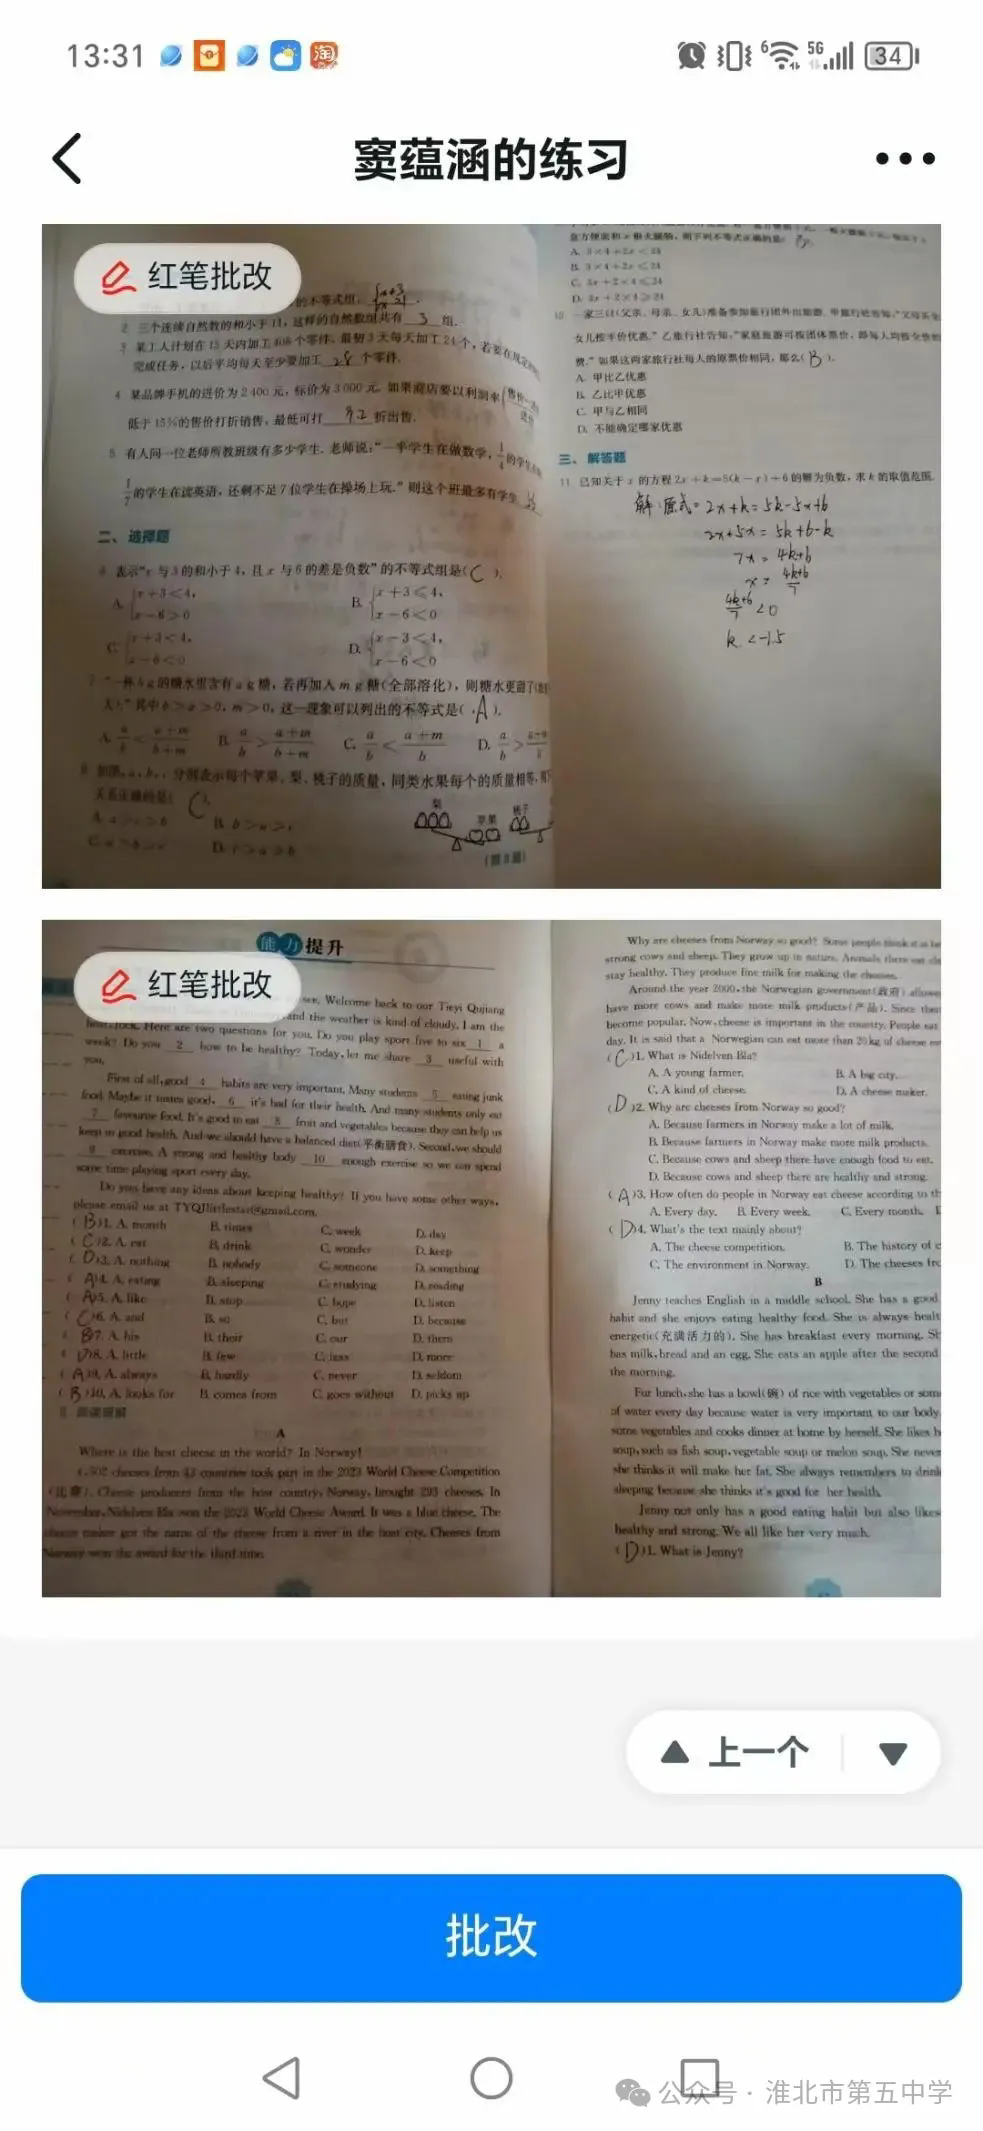 13:31
6
5G
34
窦蕴涵的练习
红笔批改
的不等式组
2 三个连续自然数的和小于11，这样的自然数组共有 3 组.
3 某工人计划在15天内加工408个零件，最初3天每天加工24个，若要在规定
完成任务，以后平均每天至少要加工 28 个零件.
4 某品牌手机的进价为2400元，标价为3000元. 如果商店要以利润率
低于15%的售价打折销售，最低可打 92 折出售.
5 有人问一位老师所教班级有多少学生. 老师说：“一半学生在做数学，1/4的学生
1/7的学生在读英语，还剩不足7位学生在操场上玩.”则这个班最多有学生
二、选择题
6 表示“x与3的和小于4，且x与6的差是负数”的不等式组是( C ).
A. {x+3<4, x-6>0
B. {x+3≤4, x-6<0
C. {x+3<4, x-6<0
D. {x-3<4, x-6<0
7 “一杯b g的糖水里含有a g糖，若再加入m g糖(全部溶化)，则糖水更甜了
大).”其中b>a>0，m>0，这一现象可以列出的不等式是( A ).
A. a/b < a+m/b+m B. a/b > a+m/b+m C. a/b < a+m/b D. a/b >
分别表示每个苹果、梨、桃子的质量，同类水果每个的质量相等，
关系正确的是( C ).
梨
苹果
桃子
(第8题)
A. 3×4+2x<24
B. 3×4+2x≤24
C. 3x+2×4≤24
D. 3x+2×4≥24
10 一家三口(父亲、母亲、女儿)准备参加旅行团外出旅游，甲旅行社告知：“父母买全
女儿按半价优惠.”乙旅行社告知：“家庭旅游可按团体票价，即每人均按全价的
费.”如果这两家旅行社每人的原票价相同，那么( B ).
A. 甲比乙优惠
B. 乙比甲优惠
C. 甲与乙相同
D. 不能确定哪家优惠
三、解答题
11 已知关于x的方程2x+k=5(k-x)+6的解为负数，求k的取值范围.
解：原式=2x+k=5k-5x+6
2x+5x=5k+6-k
7x=4k+6
x=4k+6/7
4k+6/7<0
k<-1.5
能力提升
红笔批改
Welcome back to our Tieyi Qujiang
and the weather is kind of cloudy. I am the
Here are two questions for you. Do you play sport five to six 1 a
week? Do you 2 how to be healthy? Today, let me share 3 useful with
you.
First of all, good 4 habits are very important. Many students 5 eating junk
food. Maybe it tastes good, 6 it's bad for their health. And many students only eat
7 favourite food. It's good to eat 8 fruit and vegetables because they can help us
keep in good health. And we should have a balanced diet(平衡膳食). Second, we should
9 exercise. A strong and healthy body 10 enough exercise so we can spend
some time playing sport every day.
Do you have any ideas about keeping healthy? If you have some other ways,
please email us at TYQJlittlestar@gmail.com.
( B )1. A. month B. times C. week D. day
( C )2. A. eat B. drink C. wonder D. keep
( D )3. A. nothing B. nobody C. someone D. something
( A )4. A. eating B. sleeping C. studying D. reading
( A )5. A. like B. stop C. hope D. listen
( C )6. A. and B. so C. but D. because
( B )7. A. his B. their C. our D. them
( D )8. A. little B. few C. less D. more
( A )9. A. always B. hardly C. never D. seldom
( B )10. A. looks for B. comes from C. goes without D. picks up
A
Where is the best cheese in the world? In Norway!
4,502 cheeses from 43 countries took part in the 2023 World Cheese Competition
(比赛). Cheese producers from the host country, Norway, brought 293 cheeses. In
November, Nidelven Bla won the 2023 World Cheese Award. It was a blue cheese. The
cheese maker got the name of the cheese from a river in the host city. Cheeses from
Norway won the award for the third time.
Why are cheeses from Norway so good? Some people think it is be
strong cows and sheep. They grow up in nature. Animals there eat
stay healthy. They produce fine milk for making the cheeses.
Around the year 2000, the Norwegian government(政府) allowe
have more cows and make more milk products(产品). Since then
become popular. Now, cheese is important in the country. People eat
day. It is said that a Norwegian can eat more than 20 kg of cheese
( C )1. What is Nidelven Bla?
A. A young farmer. B. A big city.
C. A kind of cheese. D. A cheese maker.
( D )2. Why are cheeses from Norway so good?
A. Because farmers in Norway make a lot of milk.
B. Because farmers in Norway make more milk products.
C. Because cows and sheep there have enough food to eat.
D. Because cows and sheep there are healthy and strong.
( A )3. How often do people in Norway eat cheese according to th
A. Every day. B. Every week. C. Every month.
( D )4. What's the text mainly about?
A. The cheese competition. B. The history of c
C. The environment in Norway. D. The cheeses fro
B
Jenny teaches English in a middle school. She has a good
habit and she enjoys eating healthy food. She is always healt
energetic(充满活力的). She has breakfast every morning. Sh
has milk, bread and an egg. She eats an apple after the second
the morning.
For lunch, she has a bowl(碗) of rice with vegetables or som
of water every day because water is very important to our body.
some vegetables and cooks dinner at home by herself. She likes h
soup, such as fish soup, vegetable soup or melon soup. She never
she thinks it will make her fat. She always remembers to drink
sleeping because she thinks it's good for her health.
Jenny not only has a good eating habit but also likes
healthy and strong. We all like her very much.
( D )1. What is Jenny?
上一个
批改
公众号·淮北市第五中学